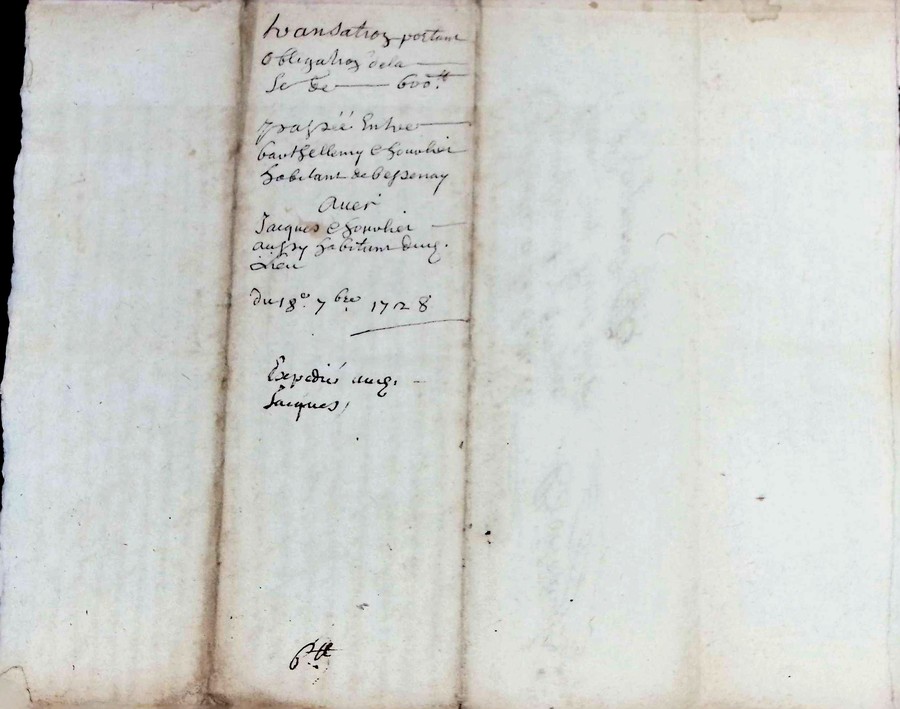 transation portant
obligation dela
Se de 600 ₶
passée Entre
barthellemy Chouvlier
habitant de bessenay
Avec
Jacques Chouvlier
aussy habitant dud.
Lieu
du 18e. 7bre. 1728
Expedié aud.
Jacques
6 ₶